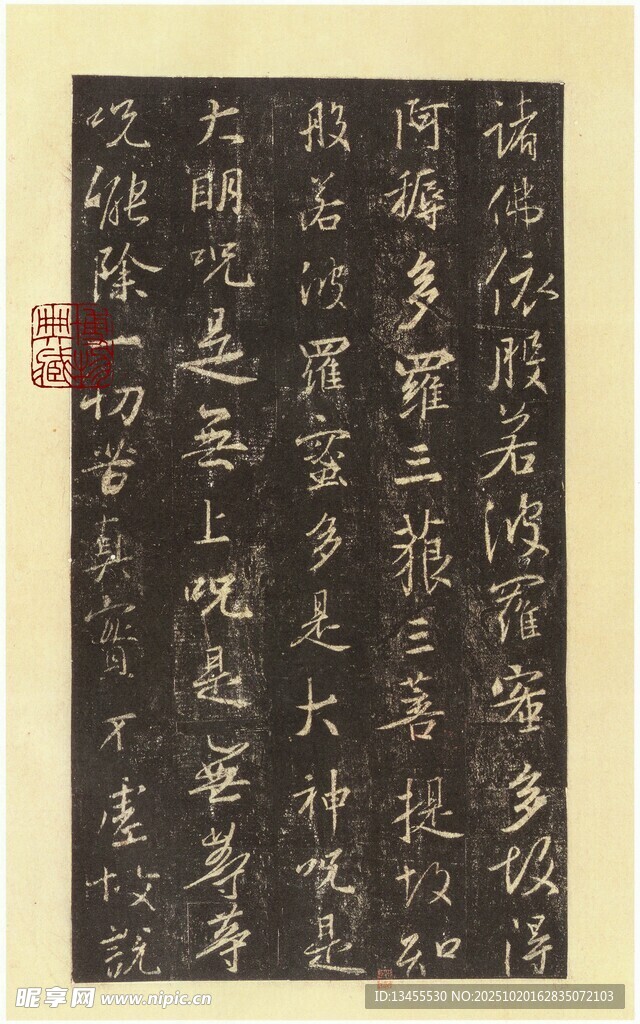 諸佛依般若波羅蜜多故得
阿耨多羅三藐三菩提故知
般若波羅蜜多是大神咒是
大明咒是無上咒是無等等
咒能除一切苦真實不虛故說
昵享网 www.nipic.cn
ID:13455530 NO:20251020162835072103